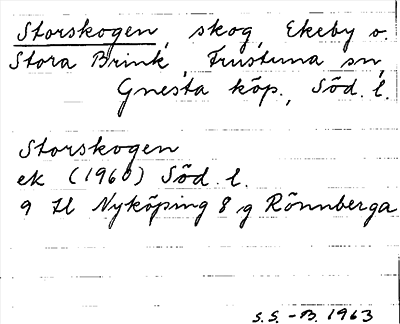 Storskogen, skog, Ekeby o.
Stora Brink, Frustuna sn,
Gnesta köp., Söd. l.
Storskogen
ek (1960) Söd. l.
9 H Nyköping 8 g Rönnberga
S.S. - B. 1963